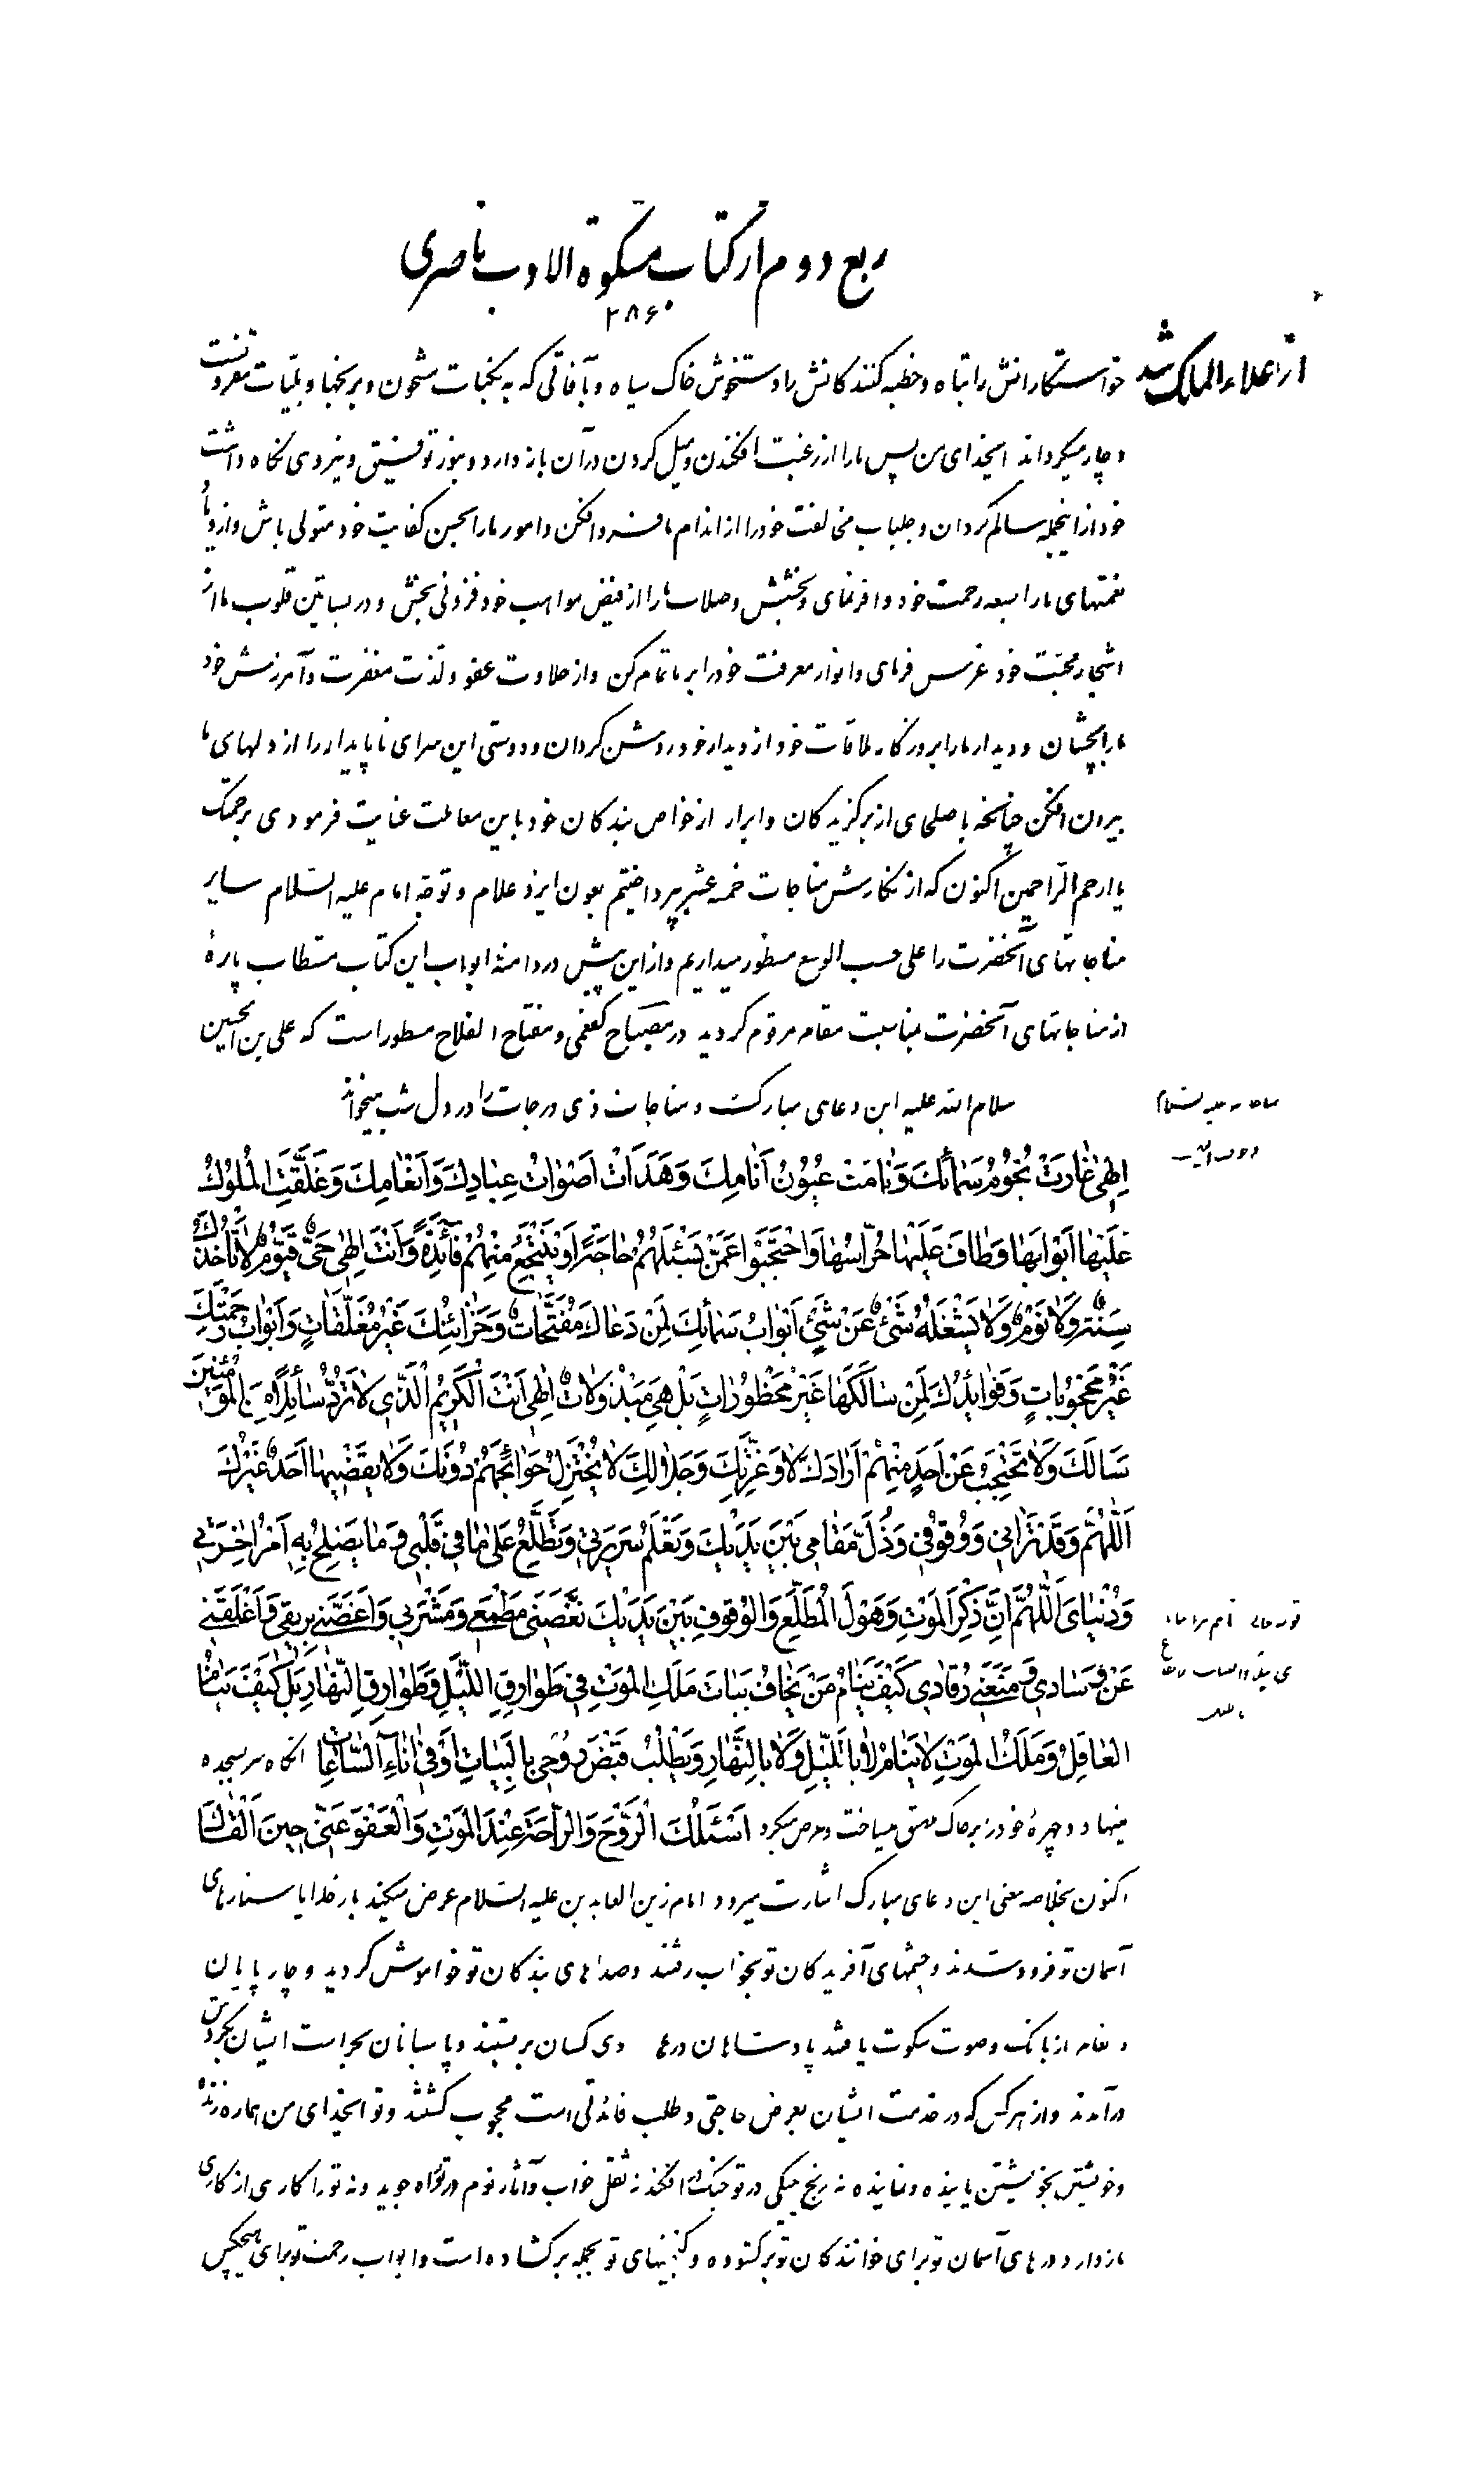 ربع دوم از کتاب مشکوة الادب ناصری
۲۸۶
از علاء الملک شد
خواستکارانش را تباه و خطبه کنندکانش را دستخوش خاک سیاه و بآفاتی که به نکبات مشحون و برنجها و بلیّات مقرونست
دچار میکرداند ایخدای من پس ما را از رغبت افکندن و میل کردن در آن باز دار و بنور توفیق و نیروی نکاه داشت
خود از اینجمله سالم کردان و جلباب مخالفت خود را از اندام ما فرو افکن و امور ما را بحسن کفایت خود متولی باش و از
نعمتهای ما را بسعه رحمت خود وافر نمای و بخشش و صلات ما را از فیض مواهب خود فزونی بخش و در بساتین قلوب ما از
اشجار محبّت خود غرس فرمای و انوار معرفت خود را بر ما تمام کن و از حلاوت عفو و لذّت مغفرت و آمرزش خود
ما را بچشان و دیدار ما را بروزکار ملاقات خود از دیدار خود روشن کردان و دوستی این سرای ناپایدار را از دلهای ما
بیرون افکن چنانکه با صلحای از برکزیدکان و ابرار از خواص بندکان خود باین معاملت عنایت فرمودی برحمتک
یا ارحم الرّاحمین اکنون که از نکارش مناجات خمسه عشر بپرداختیم بعون ایزد علام و توجّه امام علیه السّلام سایر
مناجاتهای آنحضرت را علی حسب الوسع مسطور میداریم و از این پیش در دامنه ابواب این کتاب مستطاب پارهٔ
از مناجاتهای آنحضرت بمناسبت مقام مرقوم کردید در مصباح کفعمی و مفتاح الفلاح مسطور است که علی بن الحسین
سلام اللّه علیه این دعای مبارک و مناجات ذی درجات را در دل شب میخواند
اِلٰهِی غٰارَتْ نُجُومُ سَمٰائِكَ وَنٰامَتْ عُیُونُ اَنٰامِكَ وَهَدَأَتْ اَصْوٰاتُ عِبٰادِكَ وَاَنْعٰامِكَ وَغَلَّقَتِ الْمُلُوكُ
عَلَیْهٰا اَبْوٰابَهٰا وَطٰافَ عَلَیْهٰا حُرّٰاسُهٰا وَاحْتَجَبُوا عَمَّنْ یَسْئَلُهُمْ حٰاجَةً اَوْ یَنْتَجِعُ مِنْهُمْ فٰائِدَةً وَاَنْتَ اِلٰهِی حَیٌّ قَیُّومٌ لٰا تَأْخُذُكَ
سِنَةٌ وَلٰا نَوْمٌ وَلٰا یَشْغَلُكَ شَیْءٌ عَنْ شَیْءٍ اَبْوٰابُ سَمٰائِكَ لِمَنْ دَعٰاكَ مُفَتَّحٰاتٌ وَخَزٰائِنُكَ غَیْرُ مُغَلَّقٰاتٍ وَاَبْوٰابُ رَحْمَتِكَ
غَیْرُ مَحْجُوبٰاتٍ وَفَوٰائِدُكَ لِمَنْ سَأَلَكَهٰا غَیْرُ مَحْظُورٰاتٍ بَلْ هِیَ مَبْذُولٰاتٌ اِلٰهِی اَنْتَ الْكَرِیمُ الَّذِی لٰا تَرُدُّ سٰائِلًا مِنَ الْمُؤْمِنِینَ
سَأَلَكَ وَلٰا تَحْتَجِبُ عَنْ اَحَدٍ مِنْهُمْ اَرٰادَكَ لٰا وَعِزَّتِكَ وَجَلٰالِكَ لٰا تُخْتَزَلُ حَوٰائِجُهُمْ دُونَكَ وَلٰا یَقْضِیهٰا اَحَدٌ غَیْرُكَ
اَللّٰهُمَّ وَقَدْ تَرٰانِی وَوُقُوفِی وَذُلَّ مَقٰامِی بَیْنَ یَدَیْكَ وَتَعْلَمُ سَرِیرَتِی وَتَطَّلِعُ عَلٰی مٰا فِی قَلْبِی وَمٰا یَصْلُحُ بِهِ اَمْرُ اٰخِرَتِی
وَدُنْیٰایَ اَللّٰهُمَّ اِنَّ ذِكْرَ الْمَوْتِ وَهَوْلَ الْمُطَّلَعِ وَالْوُقُوفِ بَیْنَ یَدَیْكَ نَغَّصَنِی مَطْعَمِی وَمَشْرَبِی وَاَغَصَّنِی بِرِیقِی وَاَقْلَقَنِی
عَنْ وِسٰادِی وَمَنَعَنِی رُقٰادِی كَیْفَ یَنٰامُ مَنْ یَخٰافُ بَیٰاتَ مَلَكِ الْمَوْتِ فِی طَوٰارِقِ اللَّیْلِ وَطَوٰارِقِ النَّهٰارِ بَلْ كَیْفَ یَنٰامُ
الْعٰاقِلُ وَمَلَكُ الْمَوْتِ لٰا یَنٰامُ لٰا بِاللَّیْلِ وَلٰا بِالنَّهٰارِ وَیَطْلُبُ قَبْضَ رُوحِی بِالْبَیٰاتِ اَوْ فِی اٰنٰاءِ السّٰاعٰاتِ انکاه سر بسجده
مینهاد و چهرهٔ خود را بر خاک ملصق میساخت و عرض میکرد اَسْئَلُكَ الرَّوْحَ وَالرّٰاحَةَ عِنْدَ الْمَوْتِ وَالْعَفْوَ عَنِّی حِینَ اَلْقٰاكَ
اکنون بخلاصه معنی این دعای مبارک اشارت میرود امام زین العابدین علیه السّلام عرض میکند بار خدایا ستارهای
آسمان تو فرود شدند و چشمهای آفریدکان تو بخواب رفتند و صداهای بندکان تو خواموش کردید و چارپایان
و نعام از بانک و صوت سکوت یافتند پادشاهان درها روی کسان بر بستند و پاسبانان بحراست ایشان بکردش
درآمدند و از هرکس که در خدمت ایشان بعرض حاجتی و طلب فائدتی است محجوب کشتند و تو ایخدای من هماره زندهٔ
و خویشتن بخویشتن پاینده و نماینده نه رنج پینکی در تو چنک افکند نه ثقل خواب و آثار نوم در تو راه جوید و نه تو را کاری از کاری
باز دارد درهای آسمان تو برای خوانندکان تو بر کشوده و کنجینهای تو بجمله بر کشاده است و ابواب رحمت تو برای هیچکس